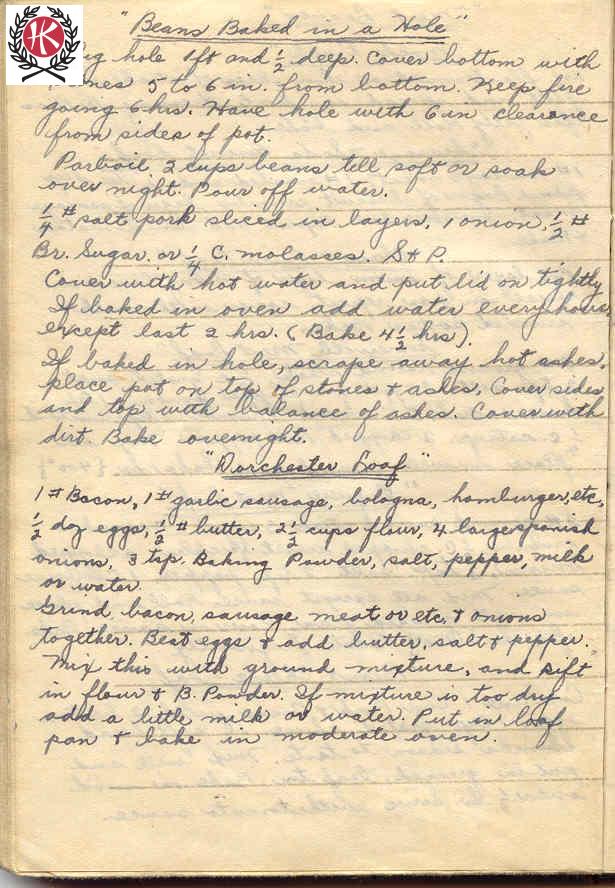 HK
"Beans Baked in a Hole"
Dig hole 1ft and ½ deep. Cover bottom with
stones 5 to 6 in. from bottom. Keep fire
going 6 hrs. Have hole with 6 in clearance
from sides of pot.
Parboil 2 cups beans till soft or soak
over night. Pour off water.
¼ # salt pork sliced in layers, 1 onion, ½ #
Br. Sugar. or ¼ C. molasses. S & P.
Cover with hot water and put lid on tightly
If baked in oven add water every hour,
except last 2 hrs. (Bake 4½ hrs).
If baked in hole, scrape away hot ashes,
place pot on top of stones & ashes, Cover sides
and top with balance of ashes. Cover with
dirt. Bake overnight.
"Dorchester Loaf"
1 # Bacon, 1 # garlic sausage, bologna, hamburger, etc,
½ doz eggs, ½ # butter, 2½ cups flour, 4 large spanish
onions, 3 tsp. Baking Powder, salt, pepper, milk
or water.
Grind bacon, sausage meat or etc. & onions
together. Beat eggs & add butter, salt & pepper.
Mix this with ground mixture, and sift
in flour & B. Powder. If mixture is too dry
add a little milk or water. Put in loaf
pan & bake in moderate oven.